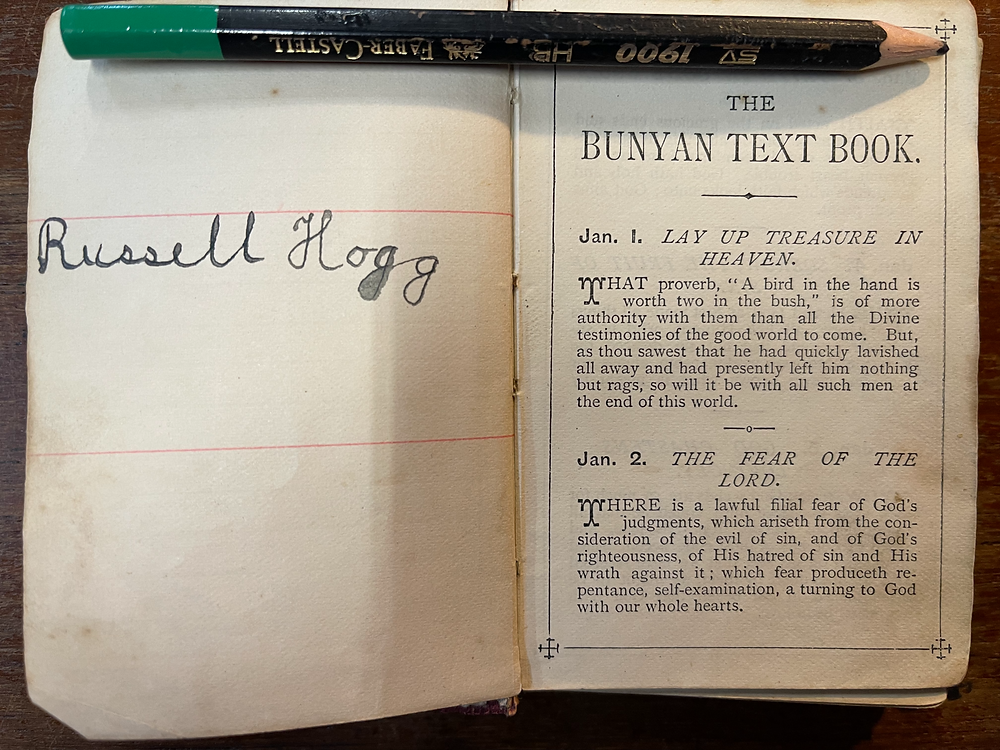 FABER-CASTELL HB 1900 SV
THE
BUNYAN TEXT BOOK.
Russell Hogg
Jan. 1. LAY UP TREASURE IN
HEAVEN.
THAT proverb, “A bird in the hand is
worth two in the bush,” is of more
authority with them than all the Divine
testimonies of the good world to come. But,
as thou sawest that he had quickly lavished
all away and had presently left him nothing
but rags, so will it be with all such men at
the end of this world.
Jan. 2. THE FEAR OF THE
LORD.
THERE is a lawful filial fear of God's
judgments, which ariseth from the con-
sideration of the evil of sin, and of God's
righteousness, of His hatred of sin and His
wrath against it; which fear produceth re-
pentance, self-examination, a turning to God
with our whole hearts.